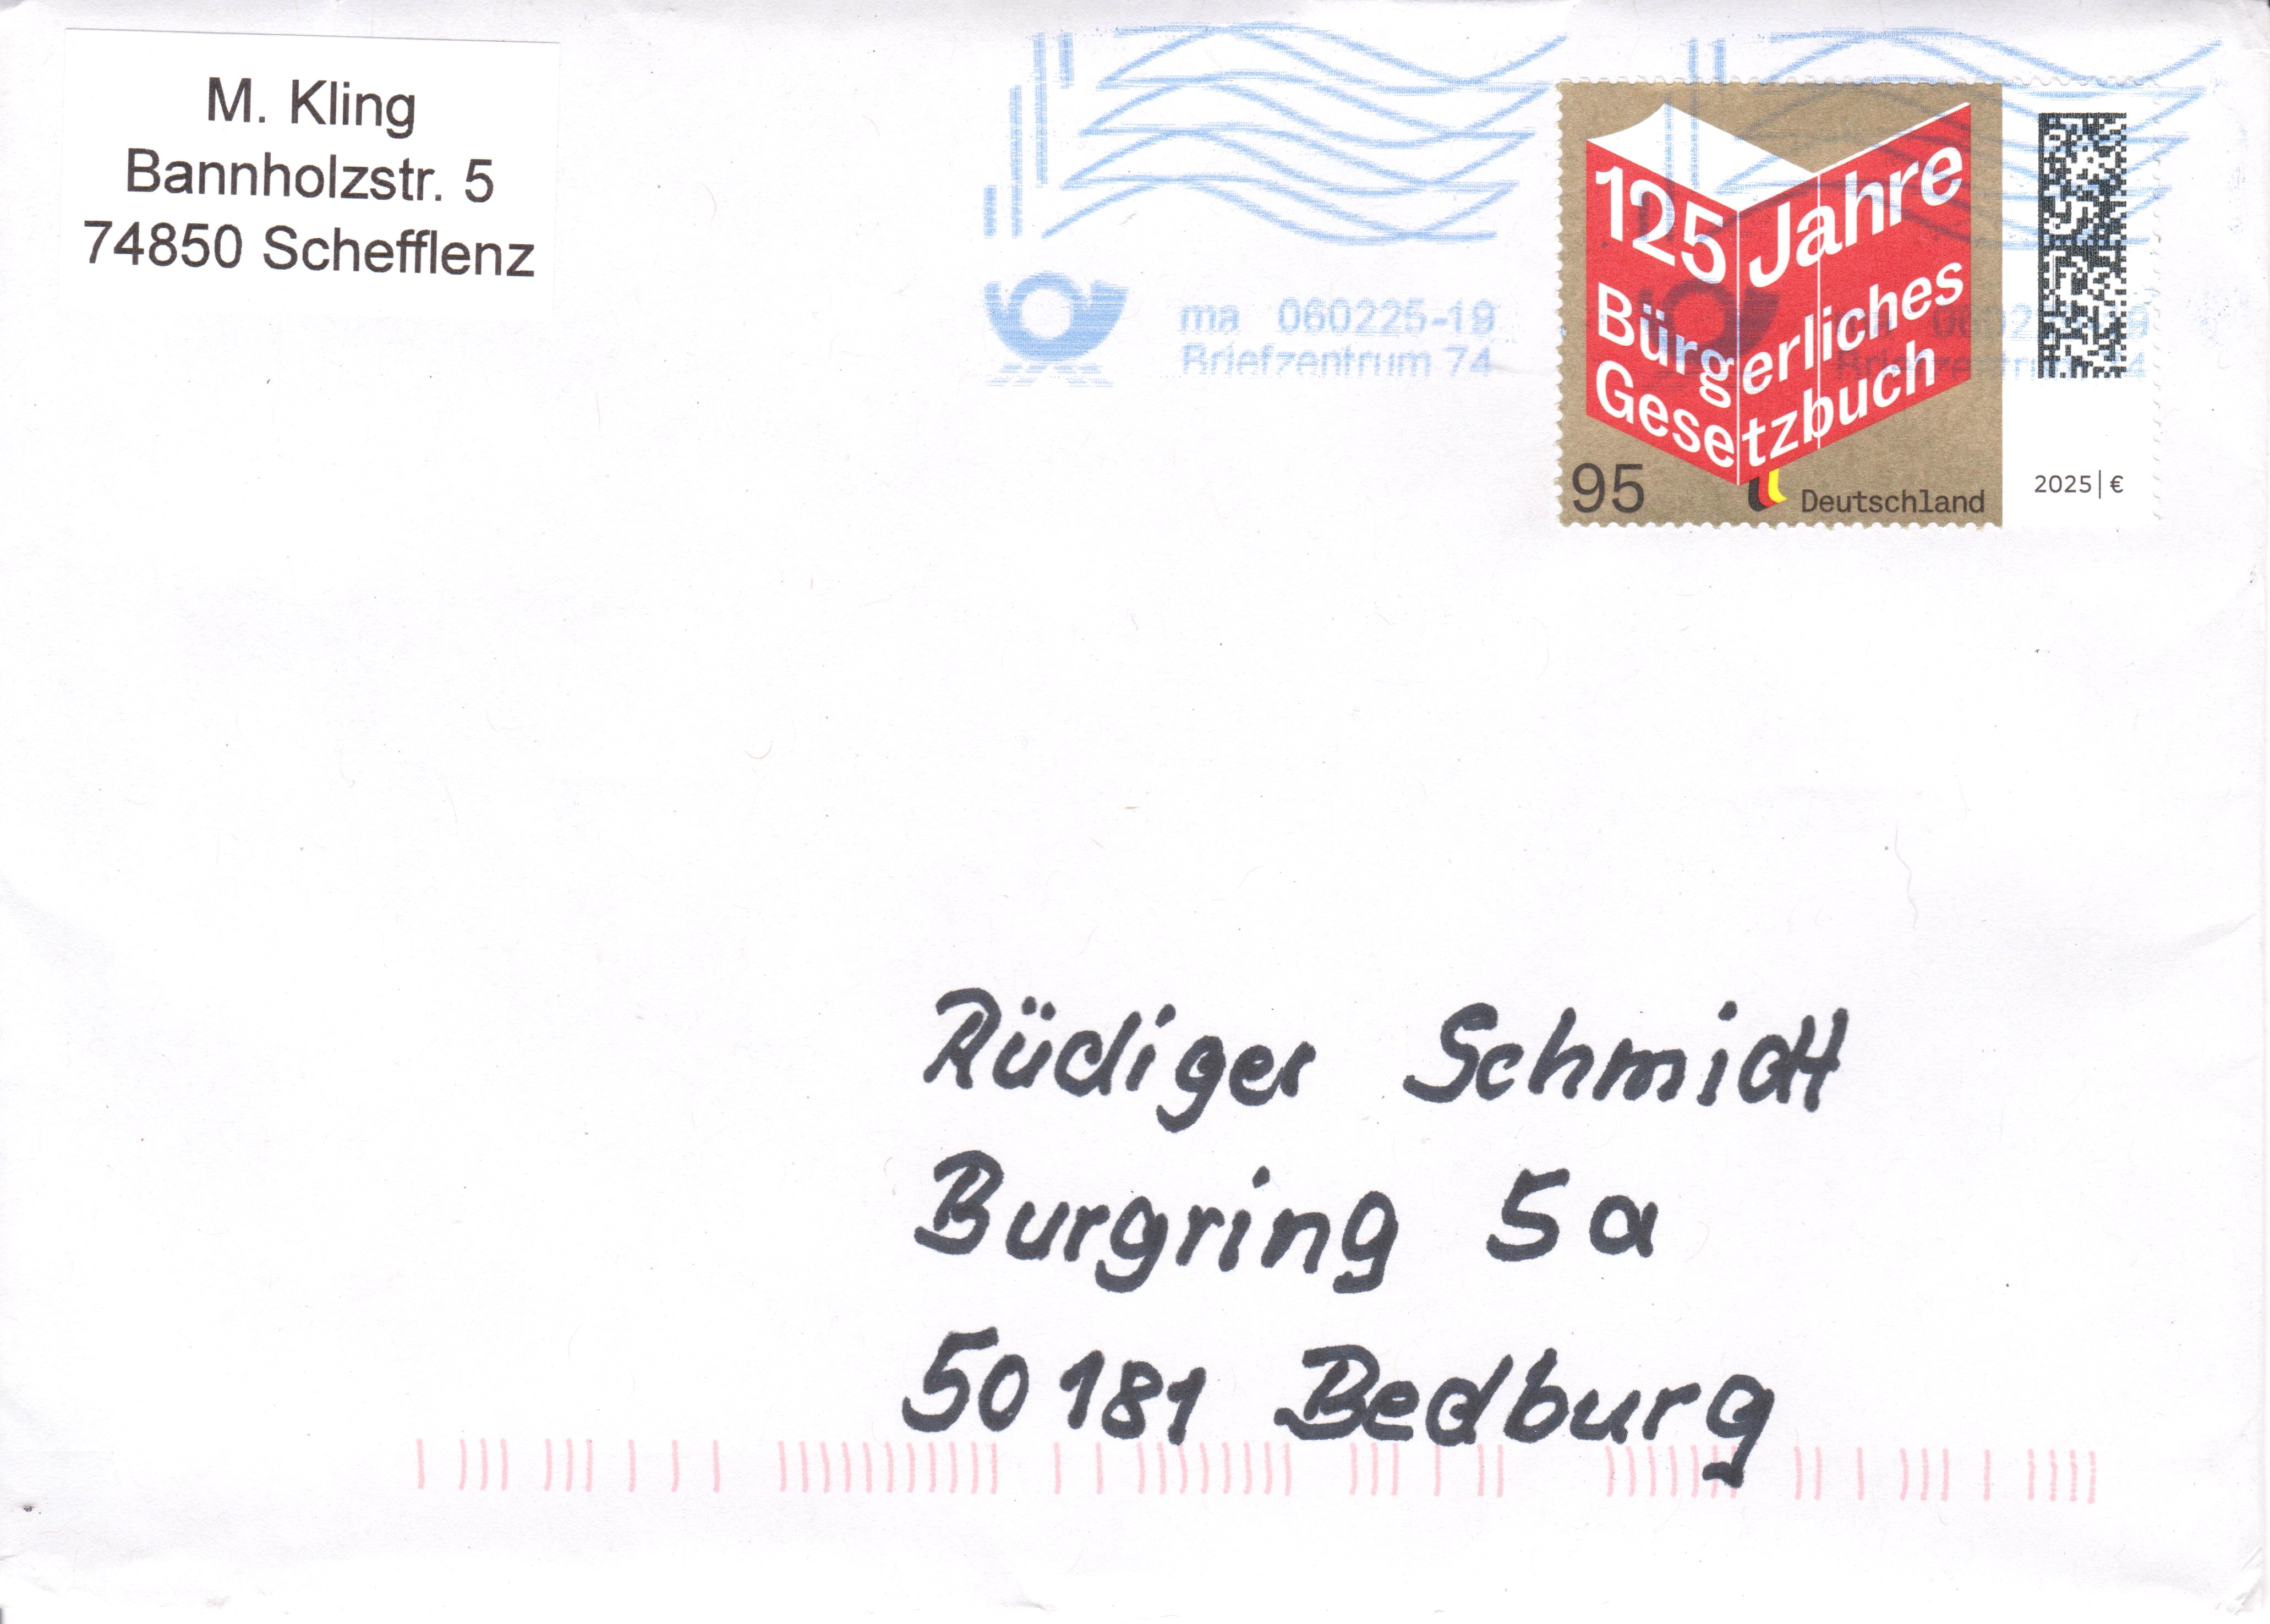 M. Kling
Bannholzstr. 5
74850 Schefflenz
ma 060225-19
Briefzentrum 74
ma 060225-19
Briefzentrum 74
125 Jahre
Bürgerliches
Gesetzbuch
95
Deutschland
2025|€
Rüdiger Schmidt
Burgring 5a
50181 Bedburg